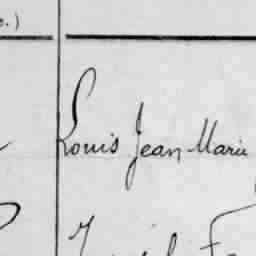 Louis Jean Marie